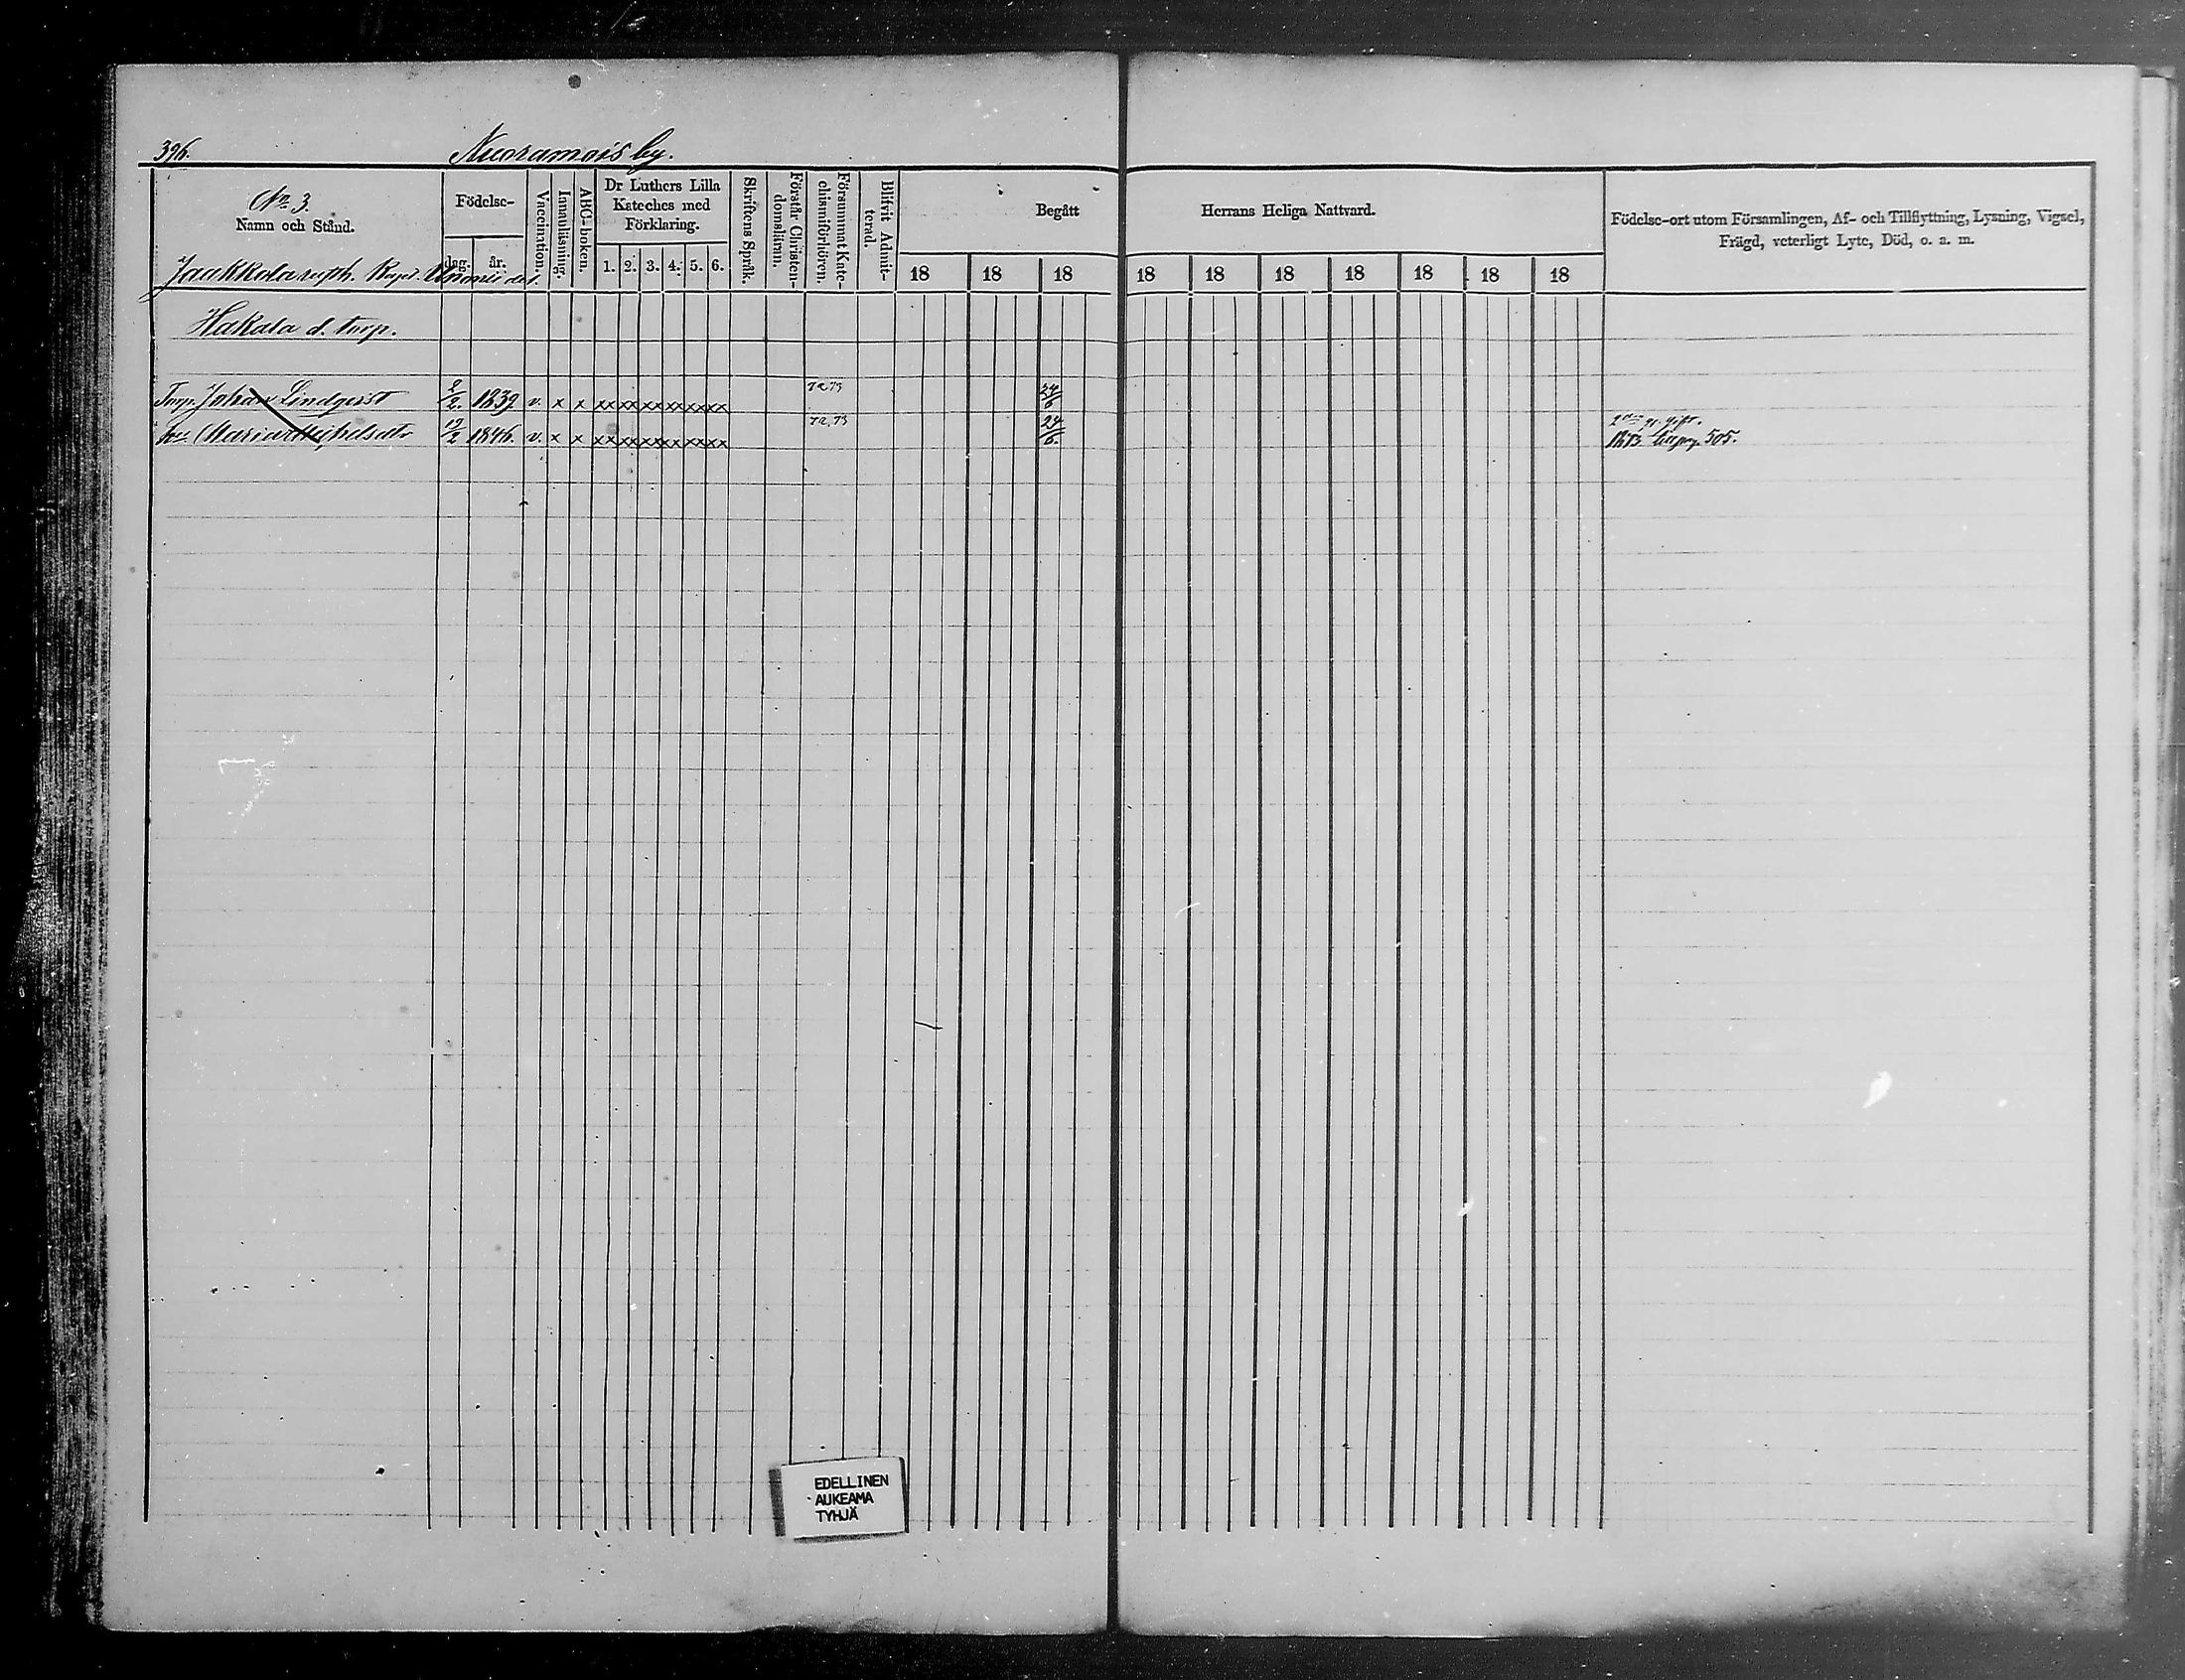 396.
Nuoramois by.
No 3.
Namn och Stånd.
Födelse-
dag.
år.
Vaccination.
Innanläsning.
ABC-boken.
Dr Luthers Lilla
Kateches med
Förklaring.
1. 2. 3. 4. 5. 6.
Skriftens Språk.
Förstår Christen-
domsläran.
Försummat Kate-
chismiförhören.
Blifvit Admit-
terad.
Begått
Herrans Heliga Nattvard.
18 18 18 18 18 18 18 18 18 18
Födelse-ort utom Församlingen, Af- och Tillflyttning, Lysning, Vigsel,
Frägd, veterligt Lyte, Död, o. a. m.
Jaakkola
Hakala d. torp.
Torp. Johan Lindqvist 2/2. 1839 v. x x xx xx xx xx xx xx 72 73 24/6
Maria Michelsdr 19/2 1846. v. x x xx xx xx xx xx xx 72, 73 24/6.
gift.
1873 505.
EDELLINEN
AUKEAMA
TYHJÄ